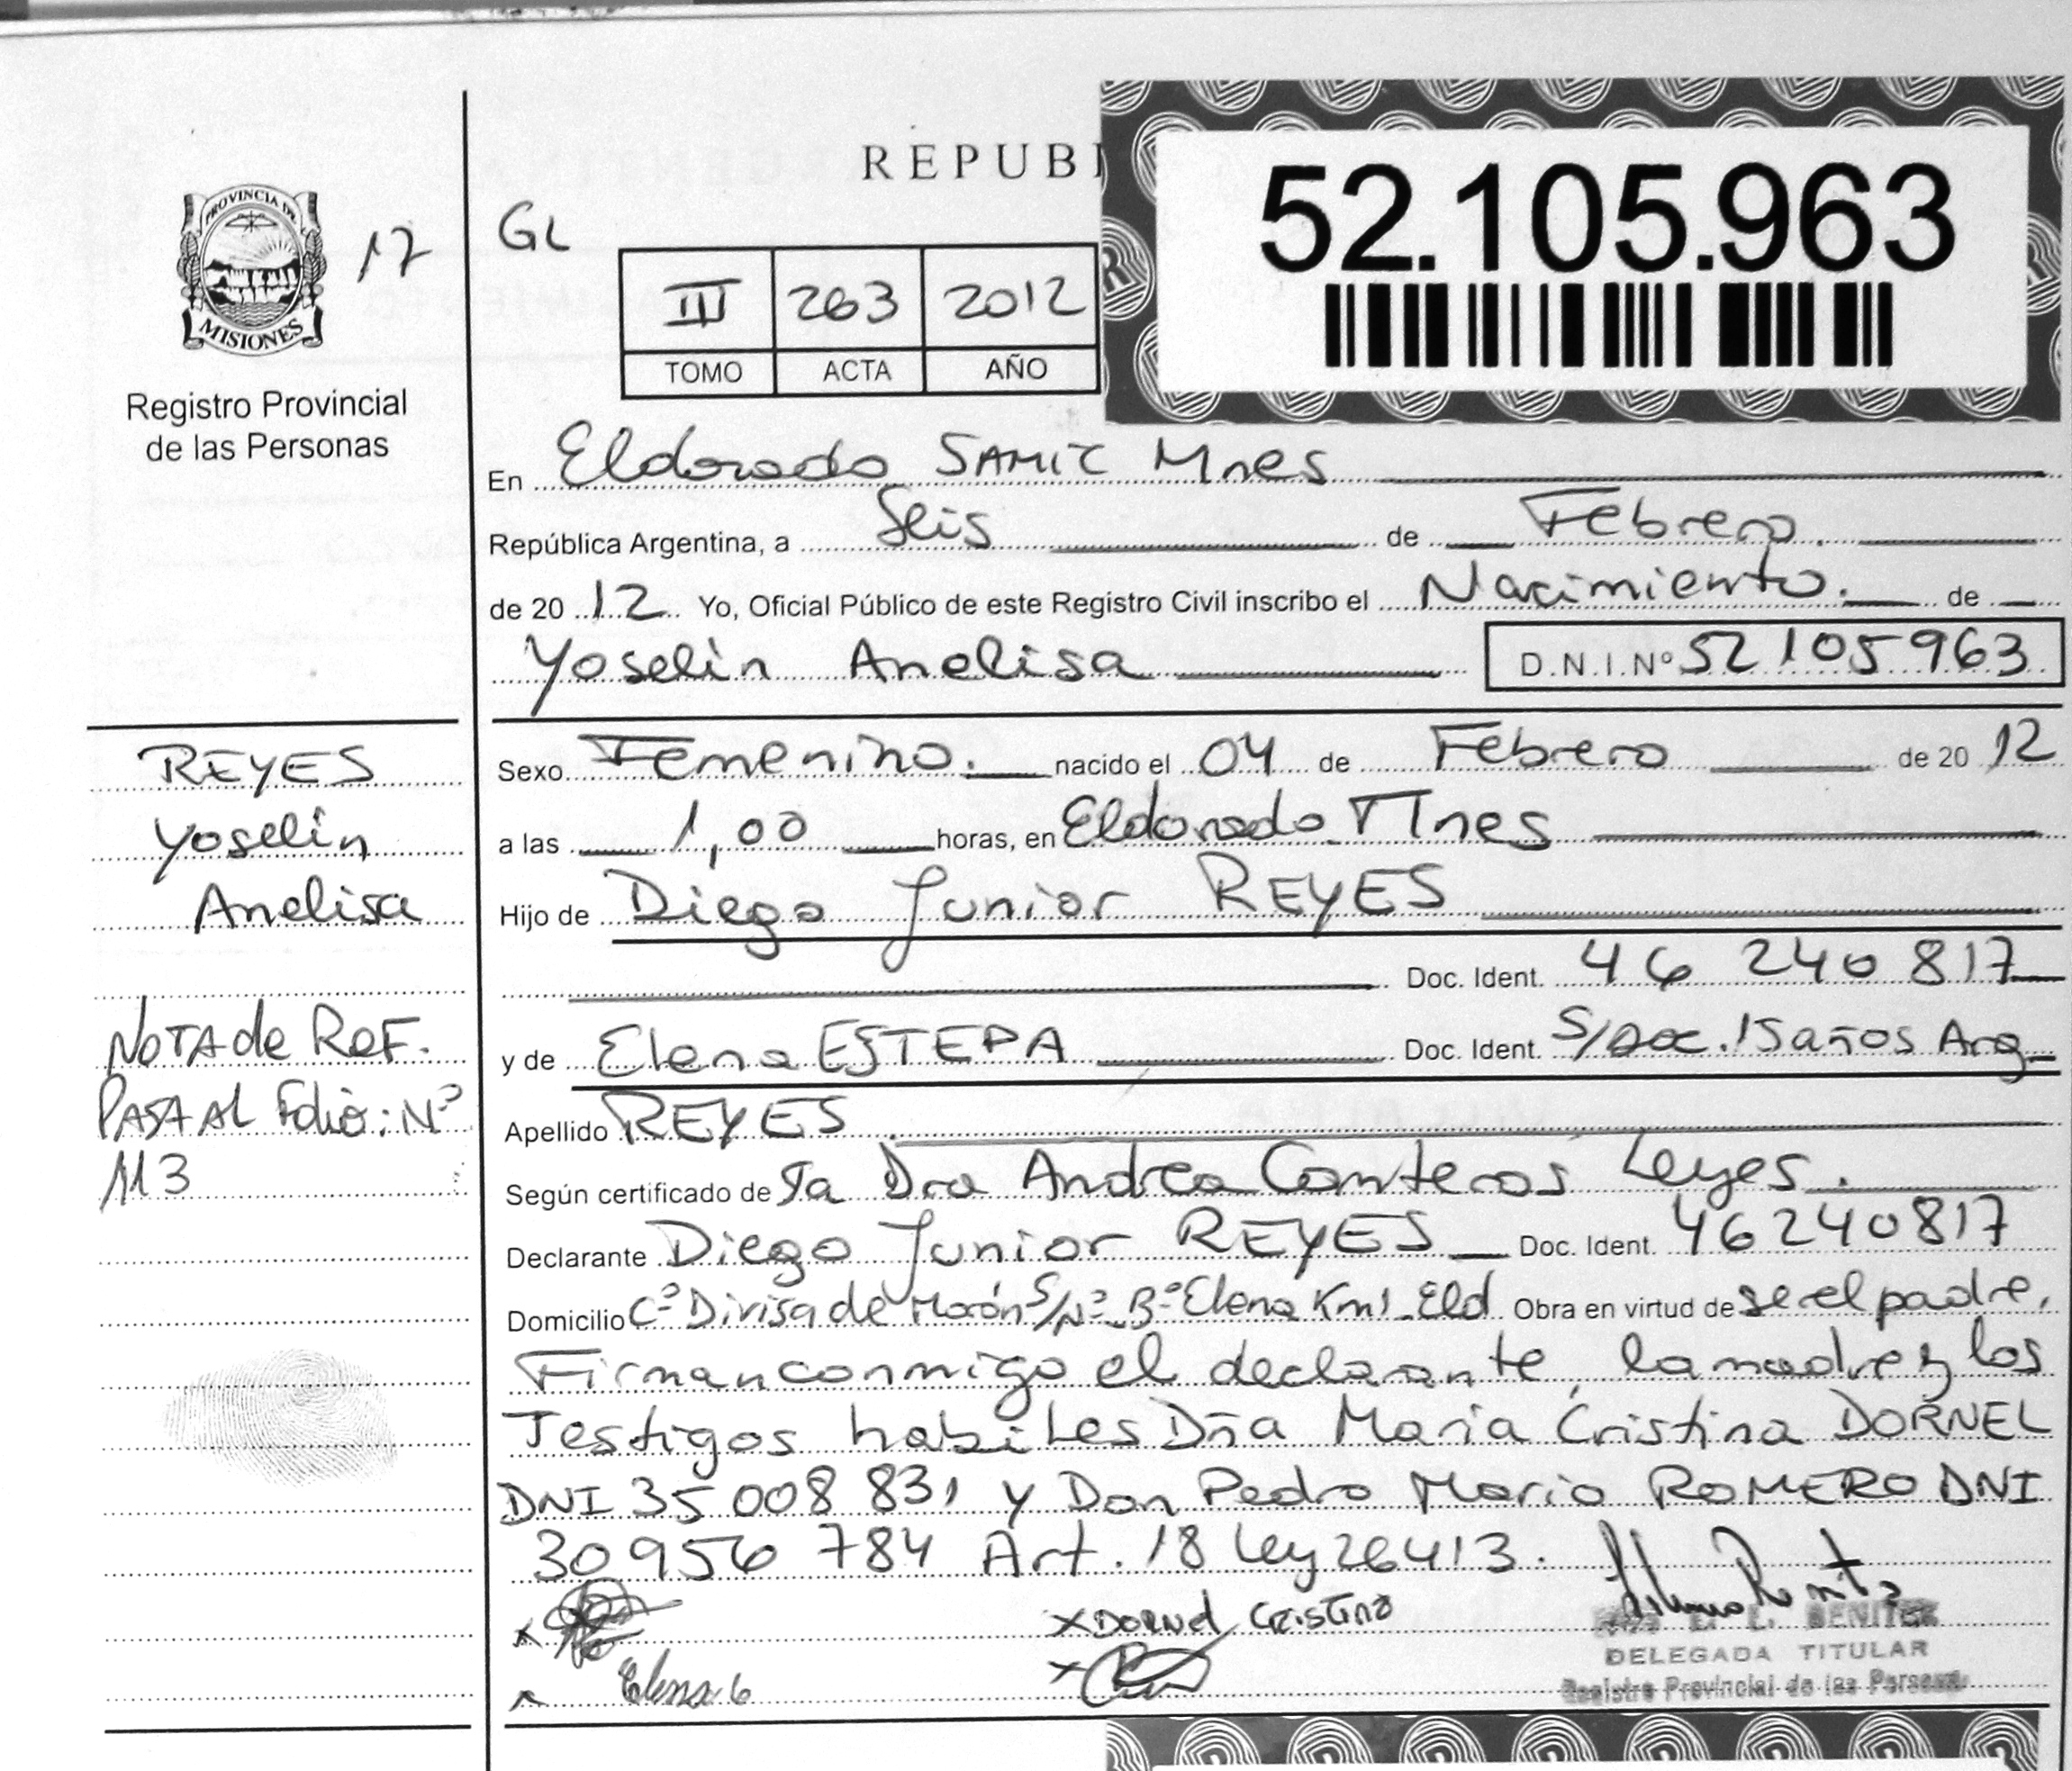 REPUBI
52.105.963
PROVINCIA DE
MISIONES
17
GL
III 263 2012
TOMO ACTA AÑO
Registro Provincial
de las Personas
En Eldorado SAMIC Mnes
República Argentina, a Seis de Febrero.
de 20 12 Yo, Oficial Público de este Registro Civil inscribo el Nacimiento. de
Yoselin Anelisa D.N.I.Nº 52105963
REYES
Yoselin
Anelisa
NOTA de REF.
PASA AL Folio: Nº
113
Sexo Femenino. nacido el 04 de Febrero de 20 12
a las 1,00 horas, en Eldorado Mnes
Hijo de Diego Junior REYES
Doc. Ident. 46 240 817
y de Elena ESTEPA Doc. Ident. S/Doc. 15 años Arg
Apellido REYES
Según certificado de la Dra Andrea Leyes.
Declarante Diego Junior REYES Doc. Ident. 46240817
Domicilio Cº Divisa de Morón S/Nº Bº Elena Km1 Eld Obra en virtud de se el padre.
Firman conmigo el declarante, la madre y los
Testigos habiles Dña Maria Cristina DORNEL
DNI 35 008 831 y Don Pedro Mario ROMERO DNI
30 956 784 Art. 18 Ley 26413.
x x DORNEL CRISTINA
Elena x
E. L. BENITEZ
DELEGADA TITULAR
Registro Provincial de las Personas